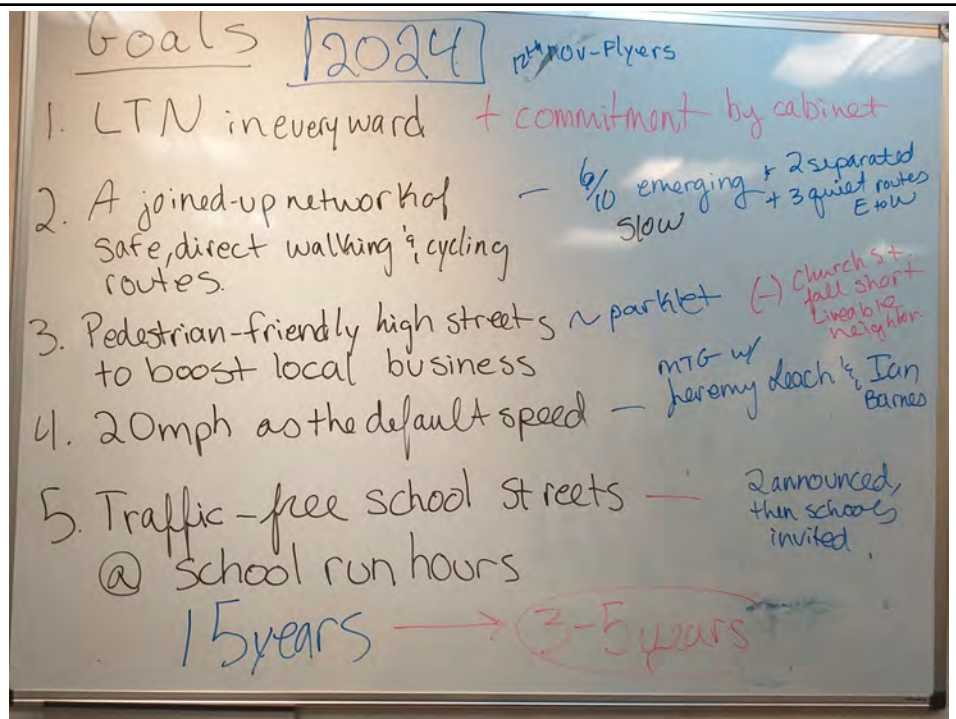 Goals 2024 12th Nov-Flyers
1. LTN in every ward + commitment by cabinet
2. A joined-up network of
safe, direct walking & cycling
routes.
— 6/10 emerging + 2 separated
slow + 3 quiet routes
E to W
3. Pedestrian-friendly high streets ~ parklet
to boost local business
(-) Church St,
fall short
Liveable
neighbor.
4. 20mph as the default speed —
MTG w/
Jeremy Leach & Ian
Barnes
5. Traffic-free school streets —
@ school run hours
2 announced,
then schools
invited.
15 years → 3-5 years